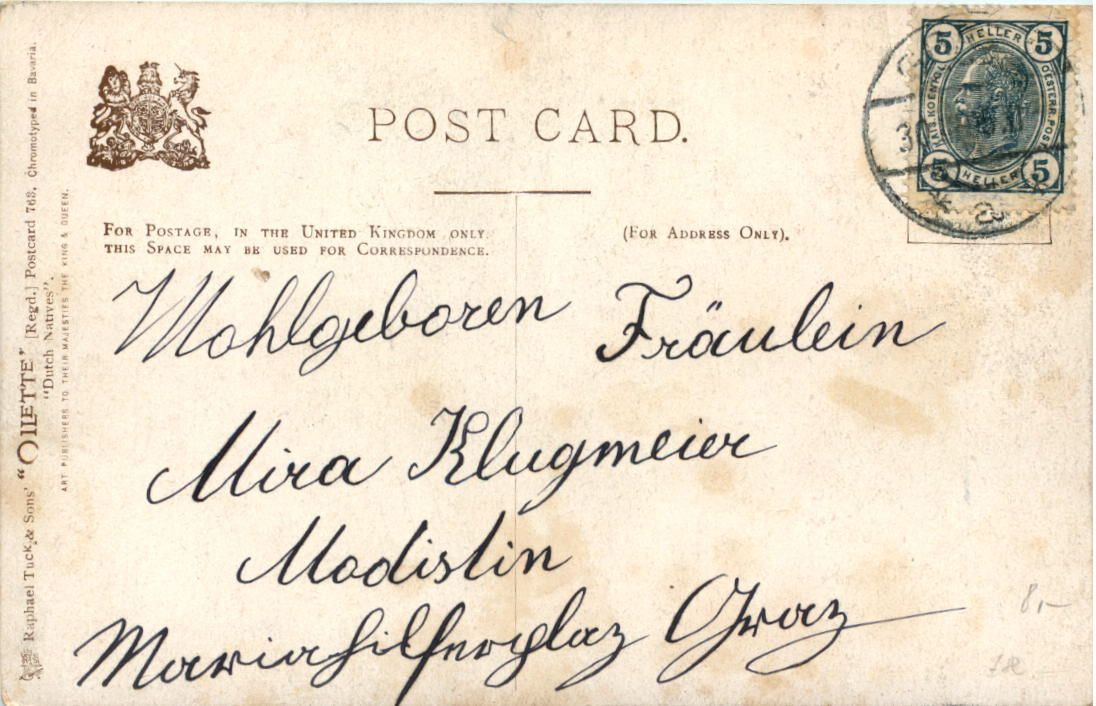 POST CARD.
FOR POSTAGE, IN THE UNITED KINGDOM ONLY.
THIS SPACE MAY BE USED FOR CORRESPONDENCE.
(FOR ADDRESS ONLY).
5 HELLER 5
KAIS. KOENIGL. OESTERR. POST
5 HELLER 5
30
Wohlgeboren Fräulein
Mira Klugmeier
Modistin
Mariahilferplaz Graz
8,–
Raphael Tuck & Sons' "OILETTE" [Regd.] Postcard 763, Chromotyped in Bavaria.
"Dutch Natives".
ART PUBLISHERS TO THEIR MAJESTIES THE KING & QUEEN.